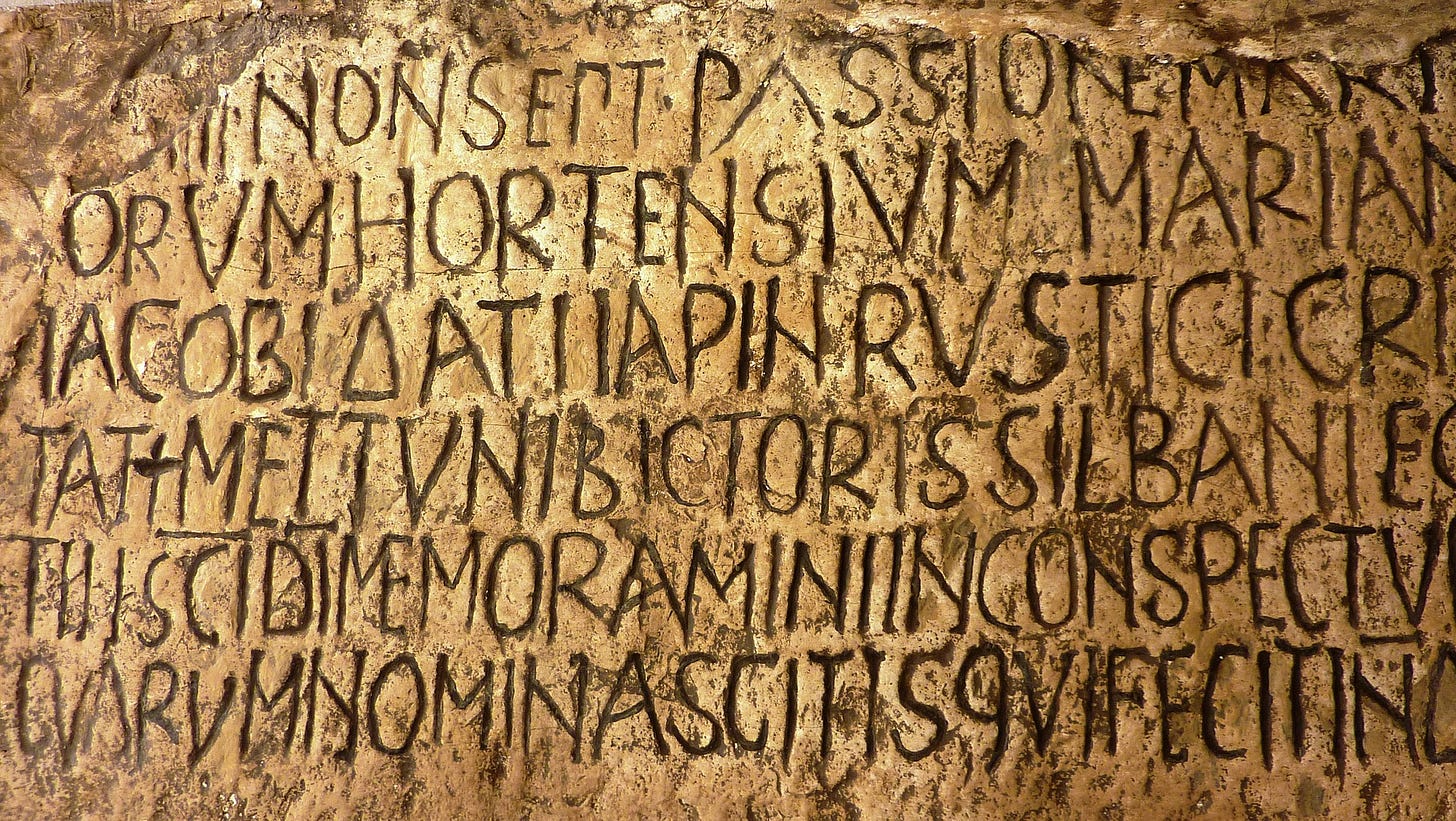 IIII NON SEPT · PASSIONE MARTV
ORVM HORTENSIVM MARIAN
IACOBI DATI IAPIN RVSTICI CRI
TAT + METTVNI BICTORIS SILBANI EG
TII SCI DI MEMORAMINI IN CONSPECTV
QVARVM NOMINA SCIT IS QVI FECIT IN